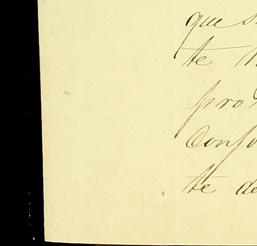 que s
te
pro
Confo
te de